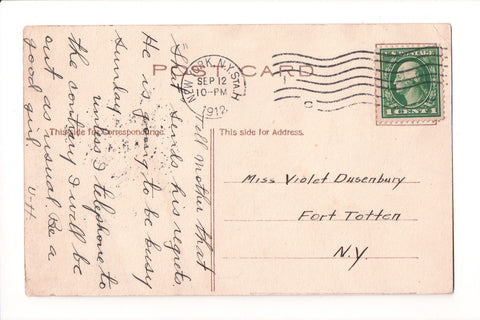 POST CARD
NEW YORK, N.Y. STA. H
SEP 12
10-PM
1912
C
1 CENT 1
This side for Correspondence.
This side for Address.
Tell Mother that
" sends his regrets.
He is going to be busy
Sunday.
unless I telephone to
the contrary I will be
out as usual. Be a
good girl. V-H.
Miss Violet Dusenbury
Fort Totten
N.Y.